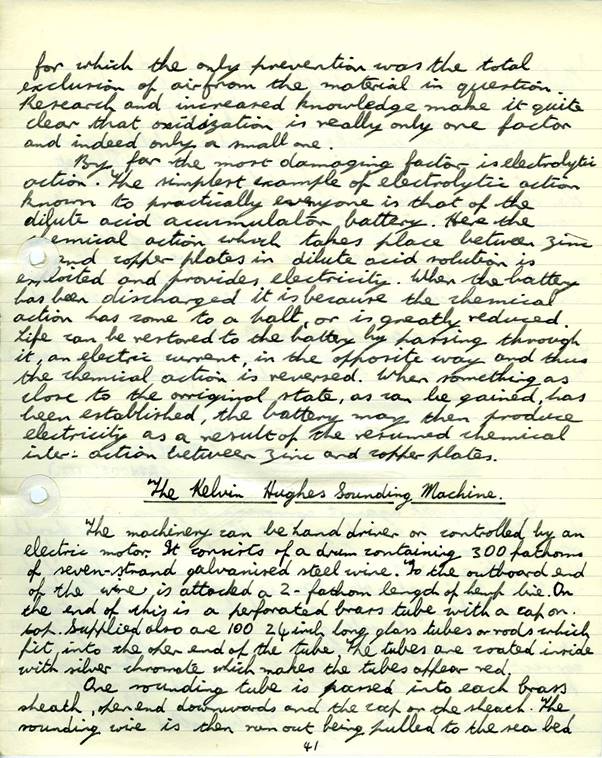 for which the only prevention was the total
exclusion of air from the material in question.
Research and increased knowledge make it quite
clear that oxidization is really only one factor
and indeed only a small one.
By far the most damaging factor is electrolytic
action. The simplest example of electrolytic action
known to practically everyone is that of the
dilute acid accumulator battery. Here the
emical action which takes place between zinc
and copper plates in dilute acid solution is
exploited and provides electricity. When the battery
has been discharged it is because the chemical
action has come to a halt, or is greatly reduced.
Life can be restored to the battery by passing through
it, an electric current, in the opposite way and thus
the chemical action is reversed. When something as
close to the orriginal state, as can be gained, has
been established, the battery may then produce
electricity as a result of the resumed chemical
inter- action between zinc and copper plates.
The Kelvin Hughes Sounding Machine.
The machinery can be hand driver or controlled by an
electric motor. It consists of a drum containing 300 fathoms
of seven-strand galvanised steel wire. To the outboard end
of the wire is attacked a 2-fathom length of hemp lie. On
the end of this is a perforated brass tube with a cap on.
top. Supplied also are 100 24 inch long glass tubes or rods which
fit, into the open end of the tube. The tubes are coated inside
with silver chromate which makes the tubes appear red.
One sounding tube is passed into each brass
sheath, open end downwards and the cap on the sheach. The
sounding wire is then run out being pulled to the sea bed
41